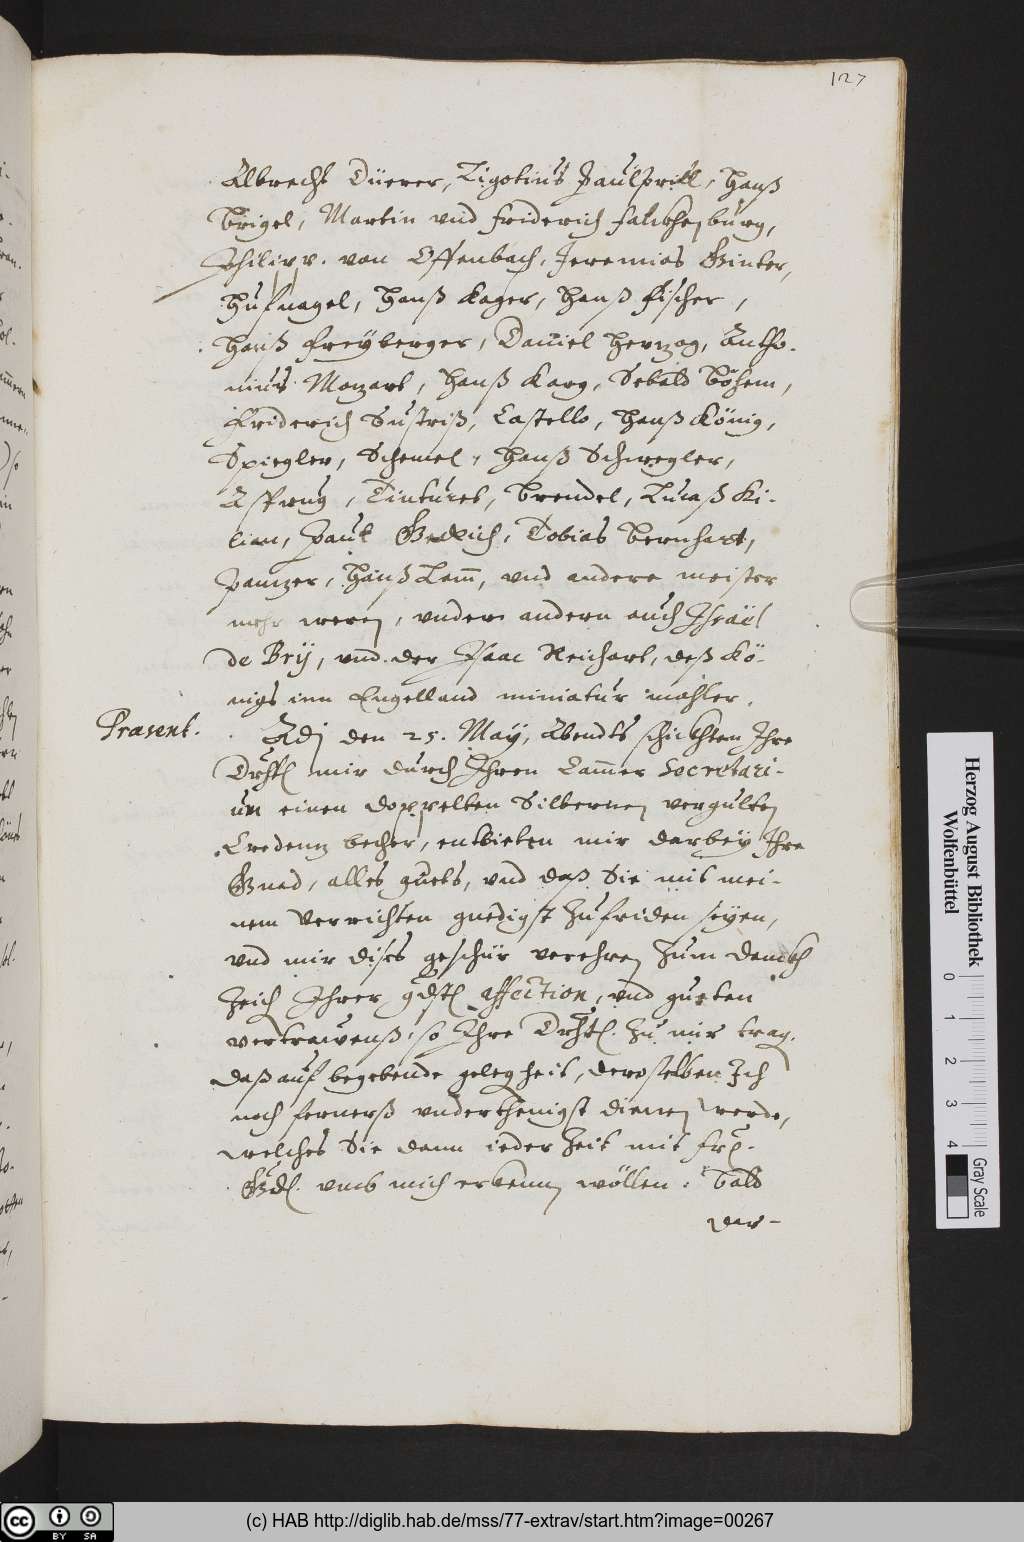 127
Albrecht Dürer, Tigotius Paulprill, Hanß
Brigel, Martin vnd friderich falckhenburg,
Philipp. von Offenbach, Jeremias Ginter,
Hufnagel, Hanß Kager, Hanß fischer,
Hanß freyberger, Daniel Herzog, Antho-
nius Mozart, Hanß Karg, Sebald Böhem,
friderich Sustriß, Castello, Hanß König,
Spiegler, Schemel, Hanß Schwegler,
Asprug, Tinturet, Brendel, Lucaß Ki-
lian, Paul Tobias Bernhart,
Panzer, Hanß Lem̃, vnd andere meister
mehr weren, vnder andern auch Jsraël
de Brÿ, vnd der Isaac Reichart, deß Kö-
nigs inn Engelland miniatur mahler.
Præsent.
Adj den 25. May, Abendts schickhten Jhre
Drhtl mir durch Jhren Cam̃er Secretari-
um einen doppelten Silbernen vergulten
Credenz becher, entbieten mir darbey Jhre
Gnad, alles guets, vnd daß Sie mit mei-
nem Verrichten gnedigst zufriden seyen,
vnd mir dises geschür verehren zum danckh
Zeich Jhrer gdstl affection, vnd gueten
vertrawenß, so Jhre Drhtl. zu mir trag,
daß auf begebende gelegheit, deroselben Jch
noch fernerß vnderthenigst dienen werde,
welches Sie dann ieder Zeit mit
vmb mich erkennen wöllen. Bald
dar-
Herzog August Bibliothek
Wolfenbüttel
0 1 2 3 4
Gray Scale
cc BY SA
(c) HAB http://diglib.hab.de/mss/77-extrav/start.htm?image=00267